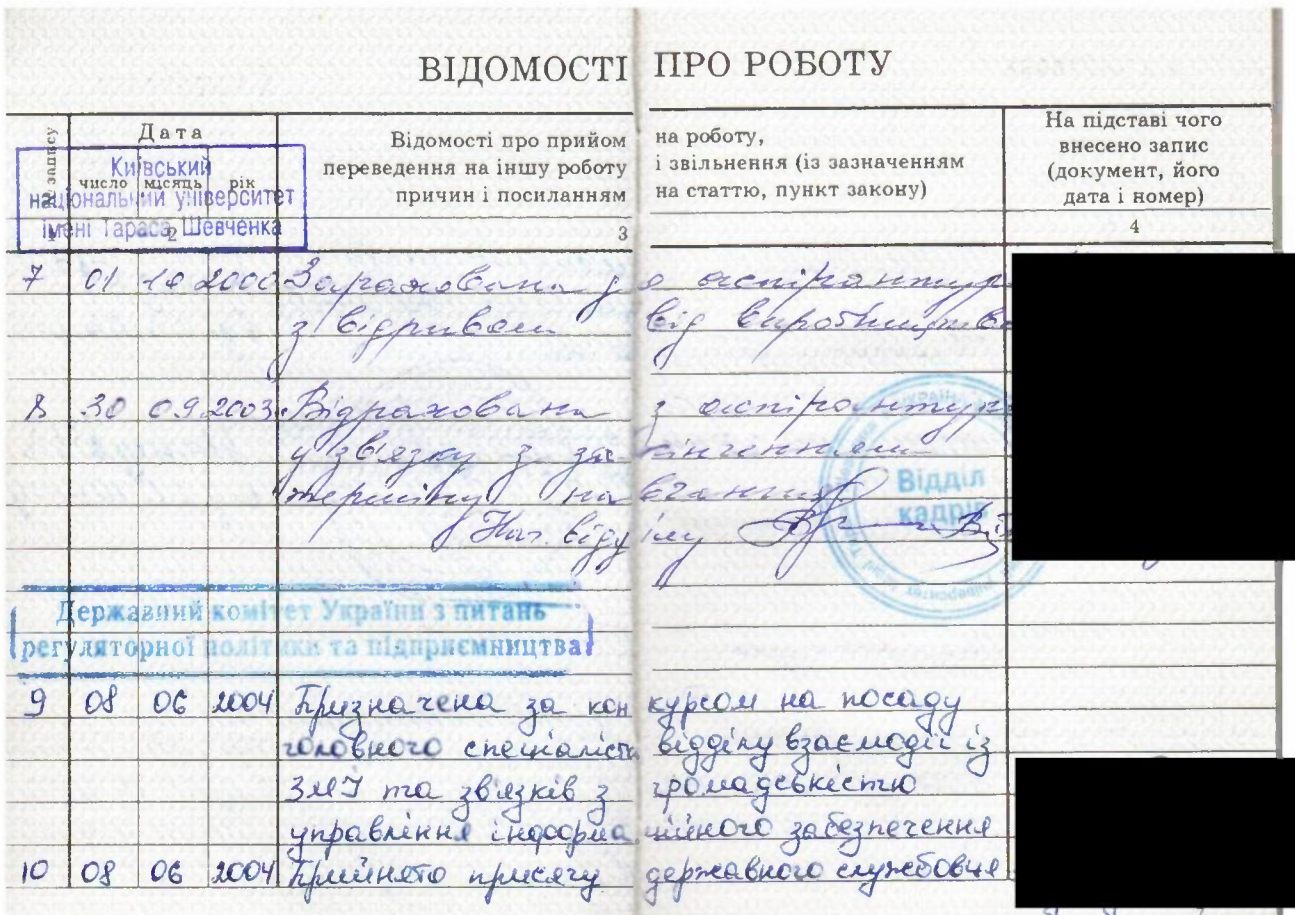 ВІДОМОСТІ ПРО РОБОТУ
№ запису
Дата
число місяць рік
Відомості про прийом на роботу,
переведення на іншу роботу і звільнення (із зазначенням
причин і посиланням на статтю, пункт закону)
На підставі чого
внесено запис
(документ, його
дата і номер)
1 2 3 4
Київський
національний університет
імені Тараса Шевченка
7 01 10 2000 Зарахована до аспірантури
з відривом від виробництва
8 30 09 2003 Відрахована з аспірантури
у зв'язку з закінченням
терміну навчання
Нач. відділу
Відділ
кадрів
Державний комітет України з питань
регуляторної політики та підприємництва
9 08 06 2004 Призначена за конкурсом на посаду
головного спеціаліста відділу взаємодії із
ЗМІ та зв'язків з громадськістю
управління інформаційного забезпечення
10 08 06 2004 Прийнято присягу державного службовця